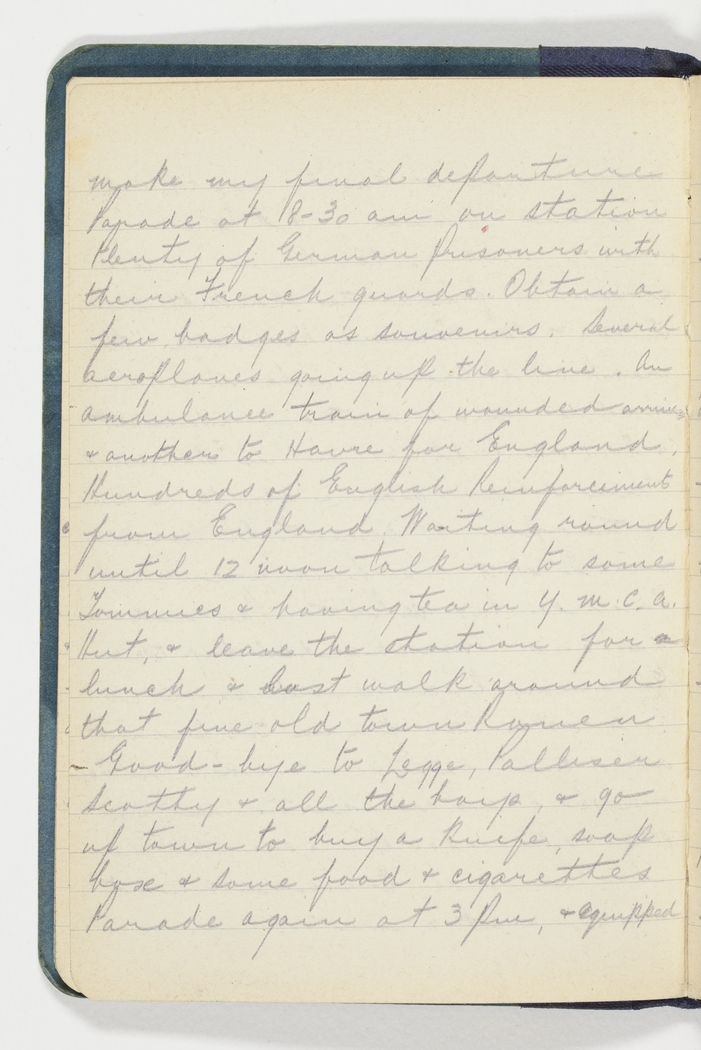 make my final departure
Parade at 8-30 am on station
Plenty of German prisoners with
their French guards. Obtain a
few badges as souvenirs. Several
aeroplanes going up the line. An
ambulance train of wounded arrives
& another to Havre for England.
Hundreds of English Reinforcements
from England. Waiting round
until 12 noon talking to some
Tommies & having tea in Y. M. C. A.
Hut, & leave the station for a
lunch & last walk around
that fine old town Rouen
- Good-bye to Legge, Palliser
Scotty & all the boys, & go
up town to buy a knife, soap
box & some food & cigarettes
Parade again at 3 pm, & equipped